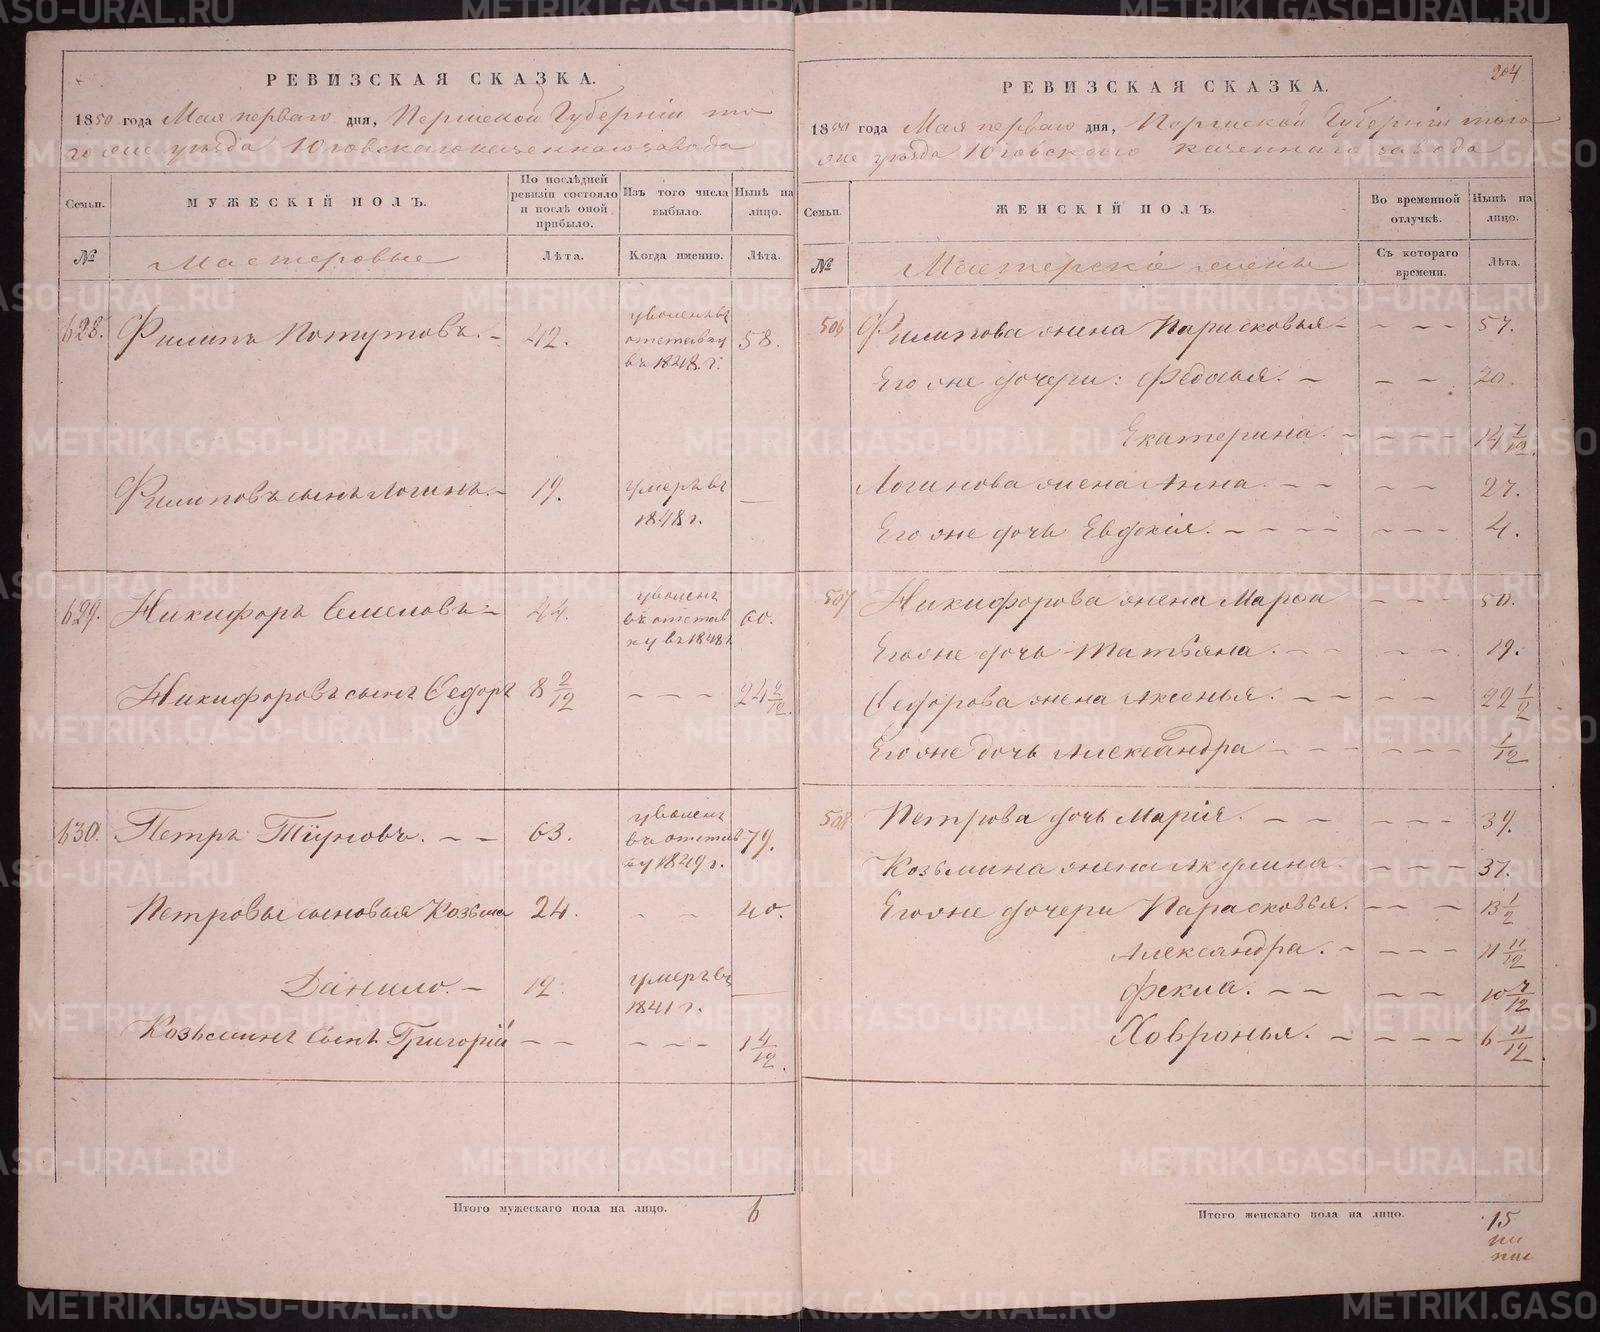 РЕВИЗСКАЯ СКАЗКА.
1850 года Мая перваго дня, Пермской Губерніи то
го же уезда Юговскаго казеннаго завода
Семьи.
МУЖЕСКІЙ ПОЛЪ.
По послѣдней ревизіи состояло и послѣ оной прибыло.
Изъ того числа выбыло.
Нынѣ на лицо.
№
Мастеровые
Лѣта.
Когда именно.
Лѣта.
628. Филипъ Потутовъ. — 42. уволенъ въ отставку въ 1848 г. 58.
Филиповъ сынъ Логинъ. — 19. умеръ въ 1848 г. —
629. Никифоръ Семеновъ — 44. уволенъ въ отставку въ 1848 г. 60.
Никифоровъ сынъ Ѳедоръ 8 2/12 — — — 24 2/12.
630. Петръ Тіуновъ. — — 63. уволенъ въ отставку 1849 г. 79.
Петровы сыновья Козьма 24. — — 40.
Данило. — 12. умеръ въ 1841 г. —
Козьминъ сынъ Григорій — — — — — 1 4/12.
Итого мужескаго пола на лицо. 6
204
РЕВИЗСКАЯ СКАЗКА.
1850 года Мая перваго дня, Пермской Губерніи того
же уезда Юговскаго казеннаго завода
Семьи.
ЖЕНСКІЙ ПОЛЪ.
Во временной отлучкѣ.
Нынѣ на лицо.
№
Мастерскіе жены
Съ котораго времени.
Лѣта.
506 Филипова жена Парасковья — — — — 57.
Его же дочери: Федосья. — — — 20.
Екатерина. — — — — 14 7/12.
Логинова жена Анна. — — — — 27.
Его же дочь Евдокія. — — — — — — — 4.
507 Никифорова жена Марфа — — — 50.
Его же дочь Татьяна. — — — — 19.
Ѳедорова жена Аксенья. — — — — 22 1/2
Его же дочь Александра — — — — — 1/12
508 Петрова дочь Марія. — — — — — — 39.
Козьмина жена Акулина. — — — 37.
Его же дочери Парасковья. — — — 13 1/2
Александра. — — — — 11 11/12
Фекла. — — — — 10 7/12
Ховронья. — — — — — 6 11/12.
Итого женскаго пола на лицо. 15
METRIKI.GASO-URAL.RU